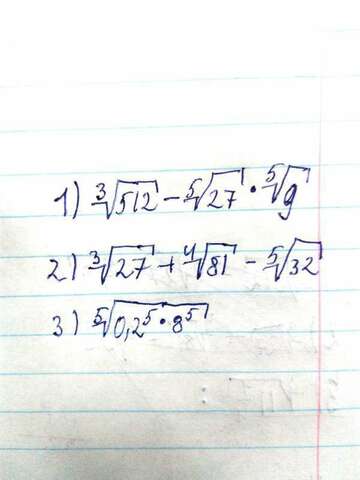 1) ∛512 − ⁵√27 · ⁵√9
2) ∛27 + ⁴√81 − ⁵√32
3) ⁵√(0,2⁵ · 8⁵)